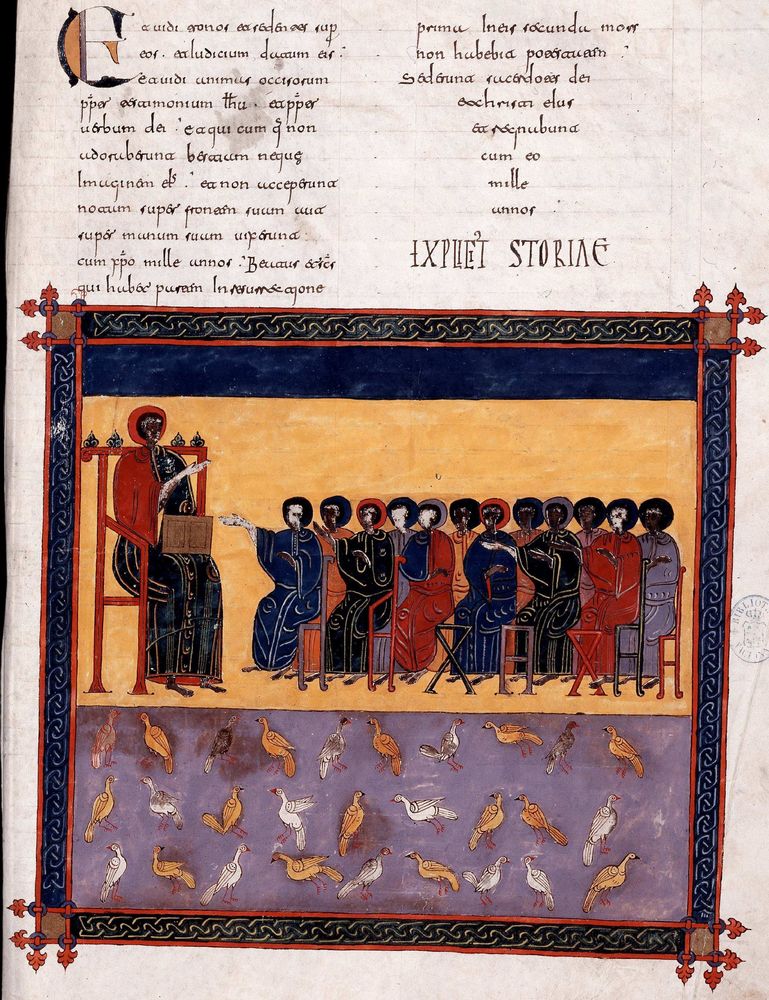 Et uidi tronos et sedentes sup
eos . et Iudicium datum eis :
Et uidi animas occisorum
ppter testimonium Ihu . et ppter
uerbum dei : et qui cum q non
adoraberunt bestiam neque
Imaginem eis : et non acceperunt
notam super frontem suum aut
super manum suum uixerunt
cum xpo mille annos : Beatus et scs
qui habet partem In resurrectione
prima In eis secunda mors
non habebit potestatem :
Sed erunt sacerdotes dei
et christi eius
et regnabunt
cum eo
mille
annos
EXPLICIT STORIAE